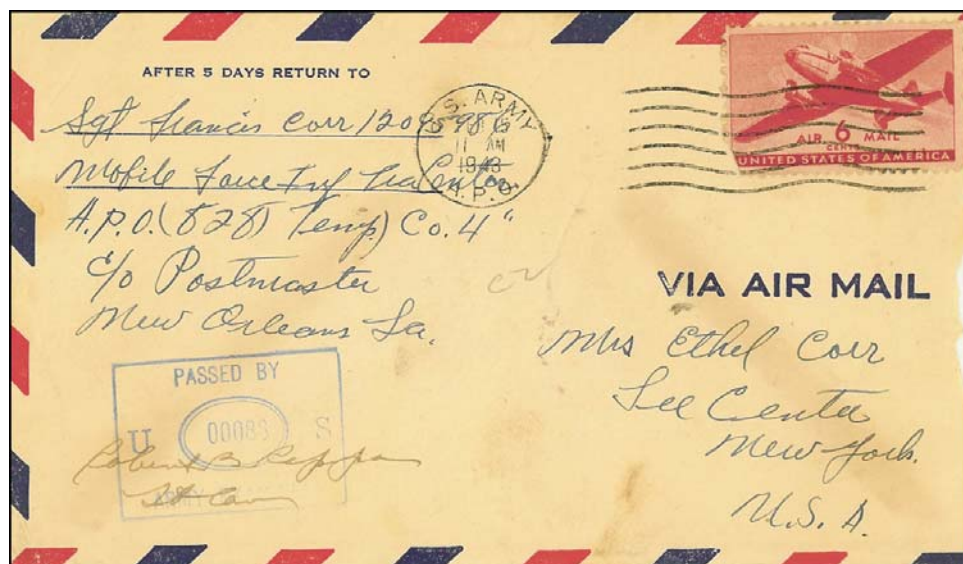 AFTER 5 DAYS RETURN TO
Sgt Francis Corr
Mobile Force
A.P.O. (828) Temp) Co. 4"
c/o Postmaster
New Orleans La.
U.S. ARMY
11 AM
1943
A.P.O.
AIR 6 MAIL
CENTS
UNITED STATES OF AMERICA
VIA AIR MAIL
Mrs Ethel Corr
Lee Center
New York.
U.S.A.
PASSED BY
U 00083 S
Robert B.